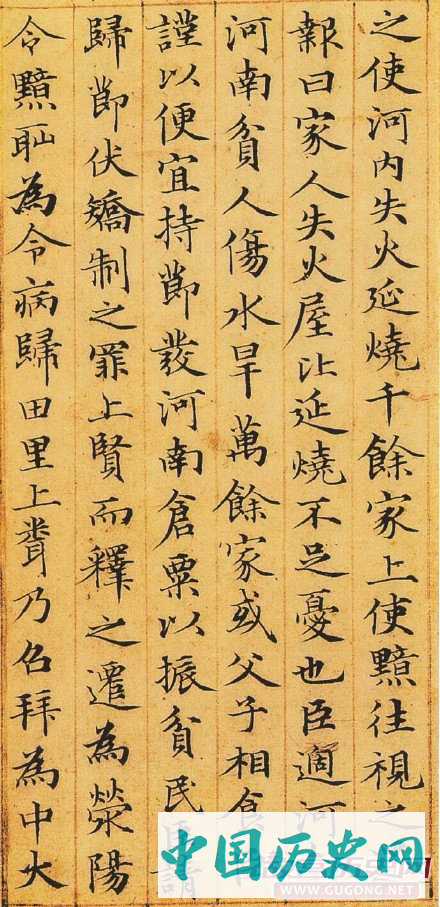 之使河内失火延燒千餘家上使黯往視之
報曰家人失火屋比延燒不足憂也臣過河
河南貧人傷水旱萬餘家或父子相食
謹以便宜持節發河南倉粟以振貧民臣請
歸節伏矯制之罪上賢而釋之遷為滎陽
令黯恥為令病歸田里上聞乃召拜為中大
中国历史网
WWW.GUGONG.NET